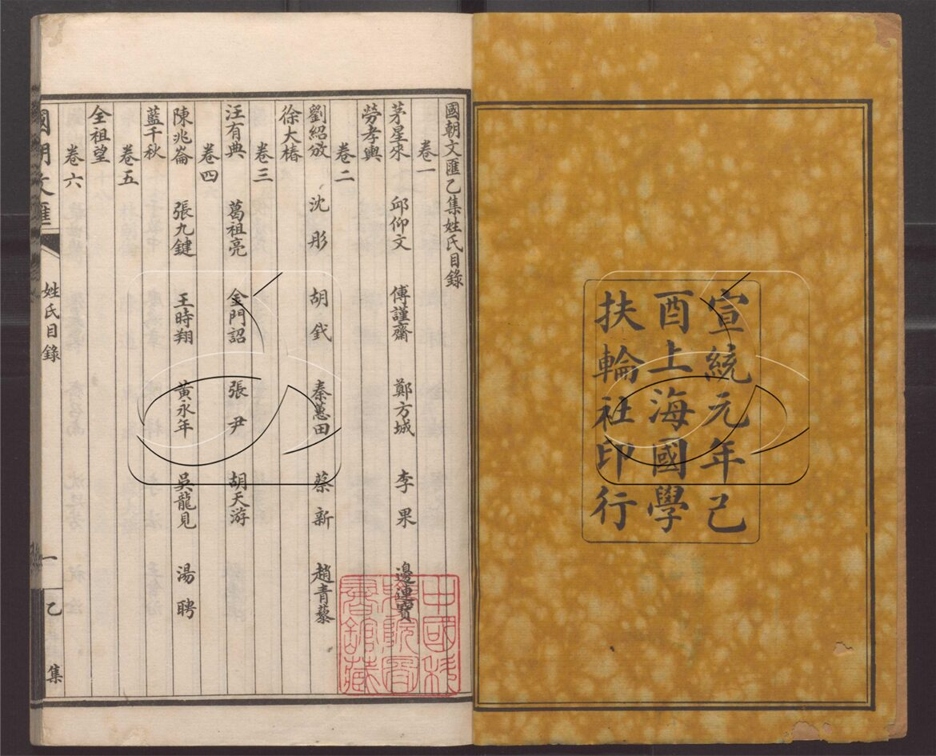 宣統元年己
酉上海國學
扶輪社印行
國朝文匯乙集姓氏目錄
卷一
茅星來 邱仰文 傅謹齋 鄭方城 李果 邊連寶
勞孝輿
卷二
劉紹攽 沈彤 胡釴 秦蕙田 蔡新 趙青藜
徐大椿
卷三
汪有典 葛祖亮 金門詔 張尹 胡天游
卷四
陳兆崙 張九鍵 王時翔 黃永年 吳龍見 湯聘
藍千秋
卷五
全祖望
卷六
國朝文匯 姓氏目錄 一 乙集